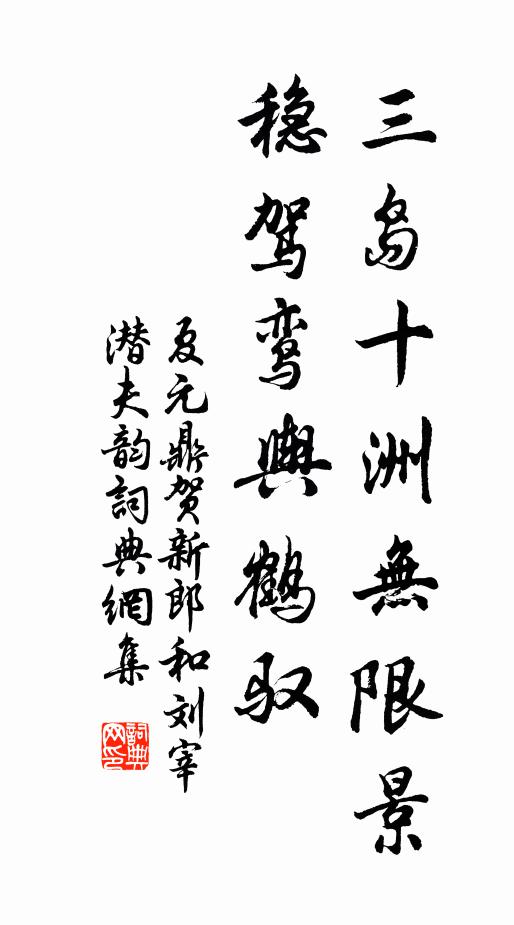 三岛十洲無限景
稳驾鸾舆鹤驭
夏元鼎贺新郎和刘宰
潜夫韵詞典網集
詞典网印